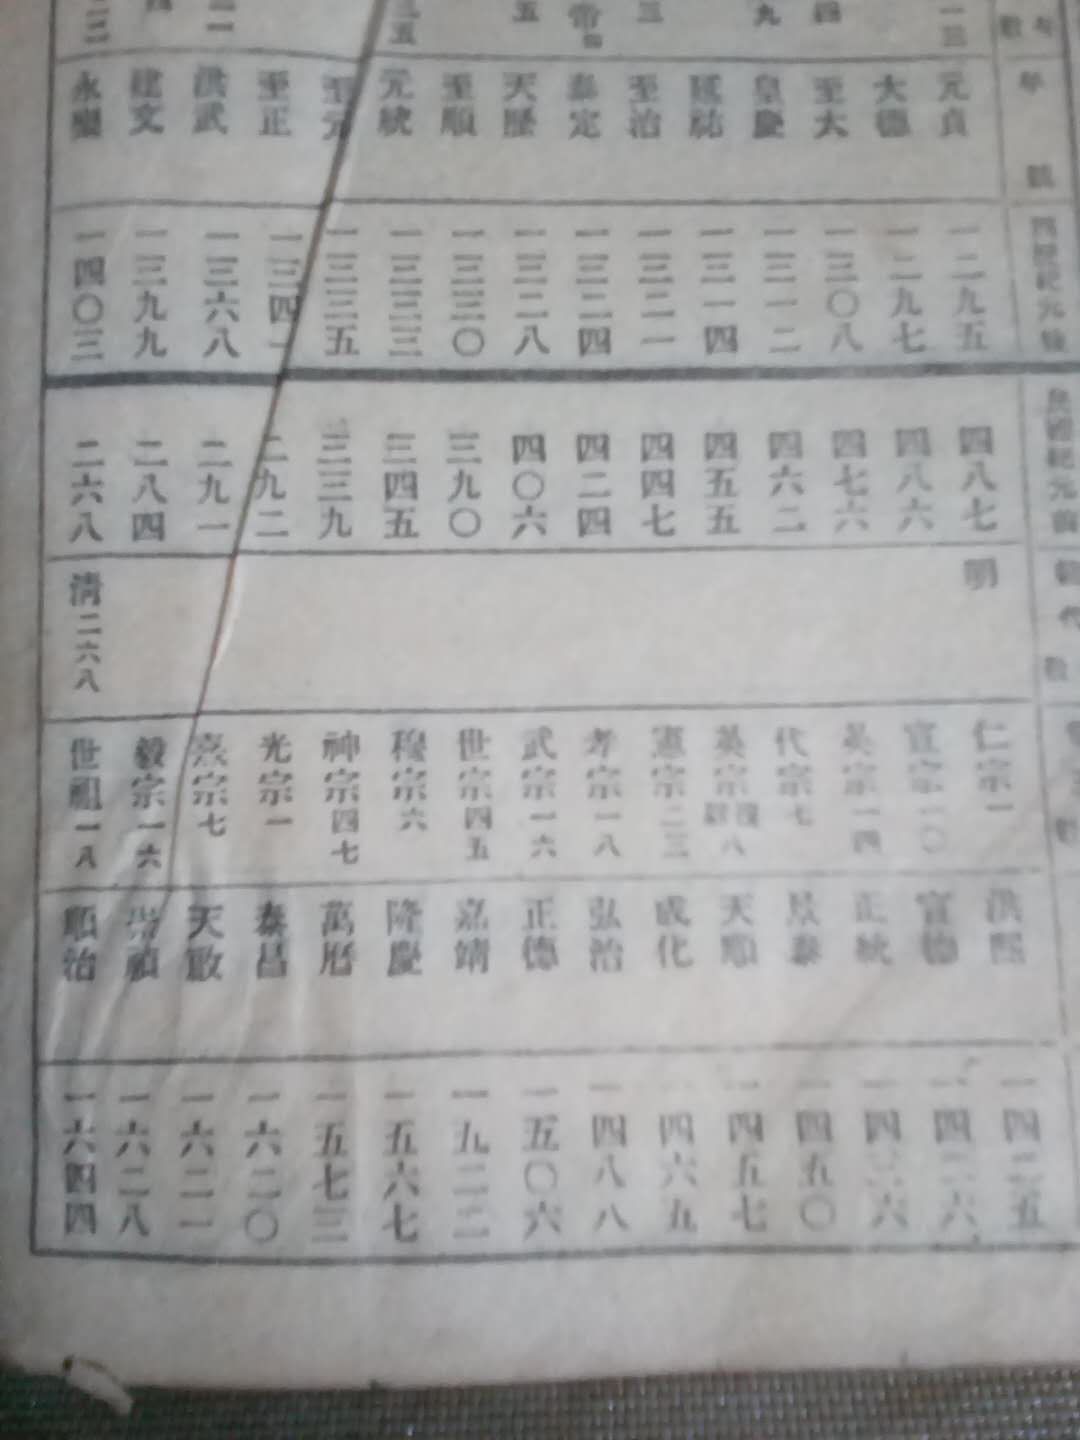 年號
元貞
大德
至大
皇慶
延祐
至治
泰定
天歷
至順
元統
至元
至正
洪武
建文
永樂
西歷紀元後
一二九五
一二九七
一三〇八
一三一二
一三一四
一三二一
一三二四
一三二八
一三三〇
一三三三
一三三五
一三四一
一三六八
一三九九
一四〇三
民國紀元前
四八七
四八六
四七六
四六二
四五五
四四七
四二四
四〇六
三九〇
三四五
三三九
二九二
二九一
二八四
二六八
朝代
明
清二六八
仁宗一
宣宗一〇
英宗一四
代宗七
英宗復辟八
憲宗二三
孝宗一八
武宗一六
世宗四五
穆宗六
神宗四七
光宗一
熹宗七
毅宗一六
世祖一八
洪熙
宣德
正統
景泰
天順
成化
弘治
正德
嘉靖
隆慶
萬曆
泰昌
天啟
崇禎
順治
一四二五
一四二六
一四三六
一四五〇
一四五七
一四六五
一四八八
一五〇六
一五六七
一五七三
一六二〇
一六二一
一六二八
一六四四